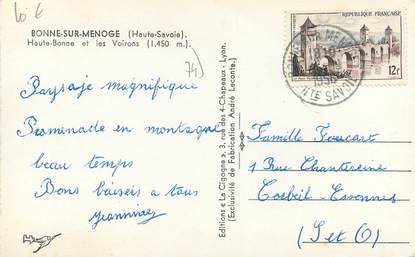 10 €
BONNE-SUR-MENOGE (Haute-Savoie).
Haute-Bonne et les Voirons (1.450 m.).
74
Paysage magnifique
Promenade en montagne
beau temps
Bons baisers a tous
Editions « La Cigogne », 3, rue des 4-Chapeaux - Lyon.
(Exclusivité de Fabrication André Leconte.)
REPUBLIQUE FRANÇAISE
12F
1956
HTE SAVOIE
Famille Foucart
1 Rue Chantereine
Corbeil-Essonnes
(S et O)